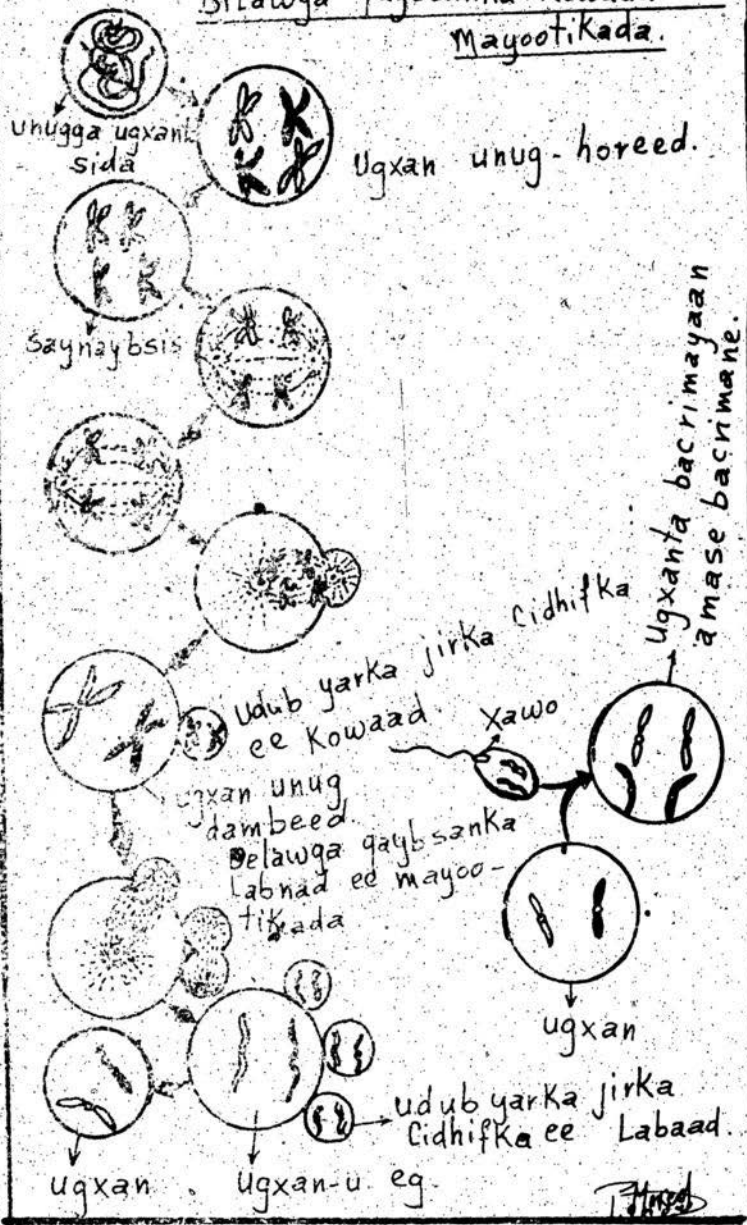 Bilawga
Mayootikada.
unugga ugxant
sida
Ugxan unug-horeed.
Saynaybsis
Ugxanta bacrimayaan
amase bacrimane.
Udub yarka jirka Cidhifka
ee Kowaad
Xawo
ugxan unug
dambeed
Belawga qaybsanka
Labnad ee mayoo-
tikada
ugxan
udub yarka jirka
Cidhifka ee Labaad.
ugxan
ugxan-u eg